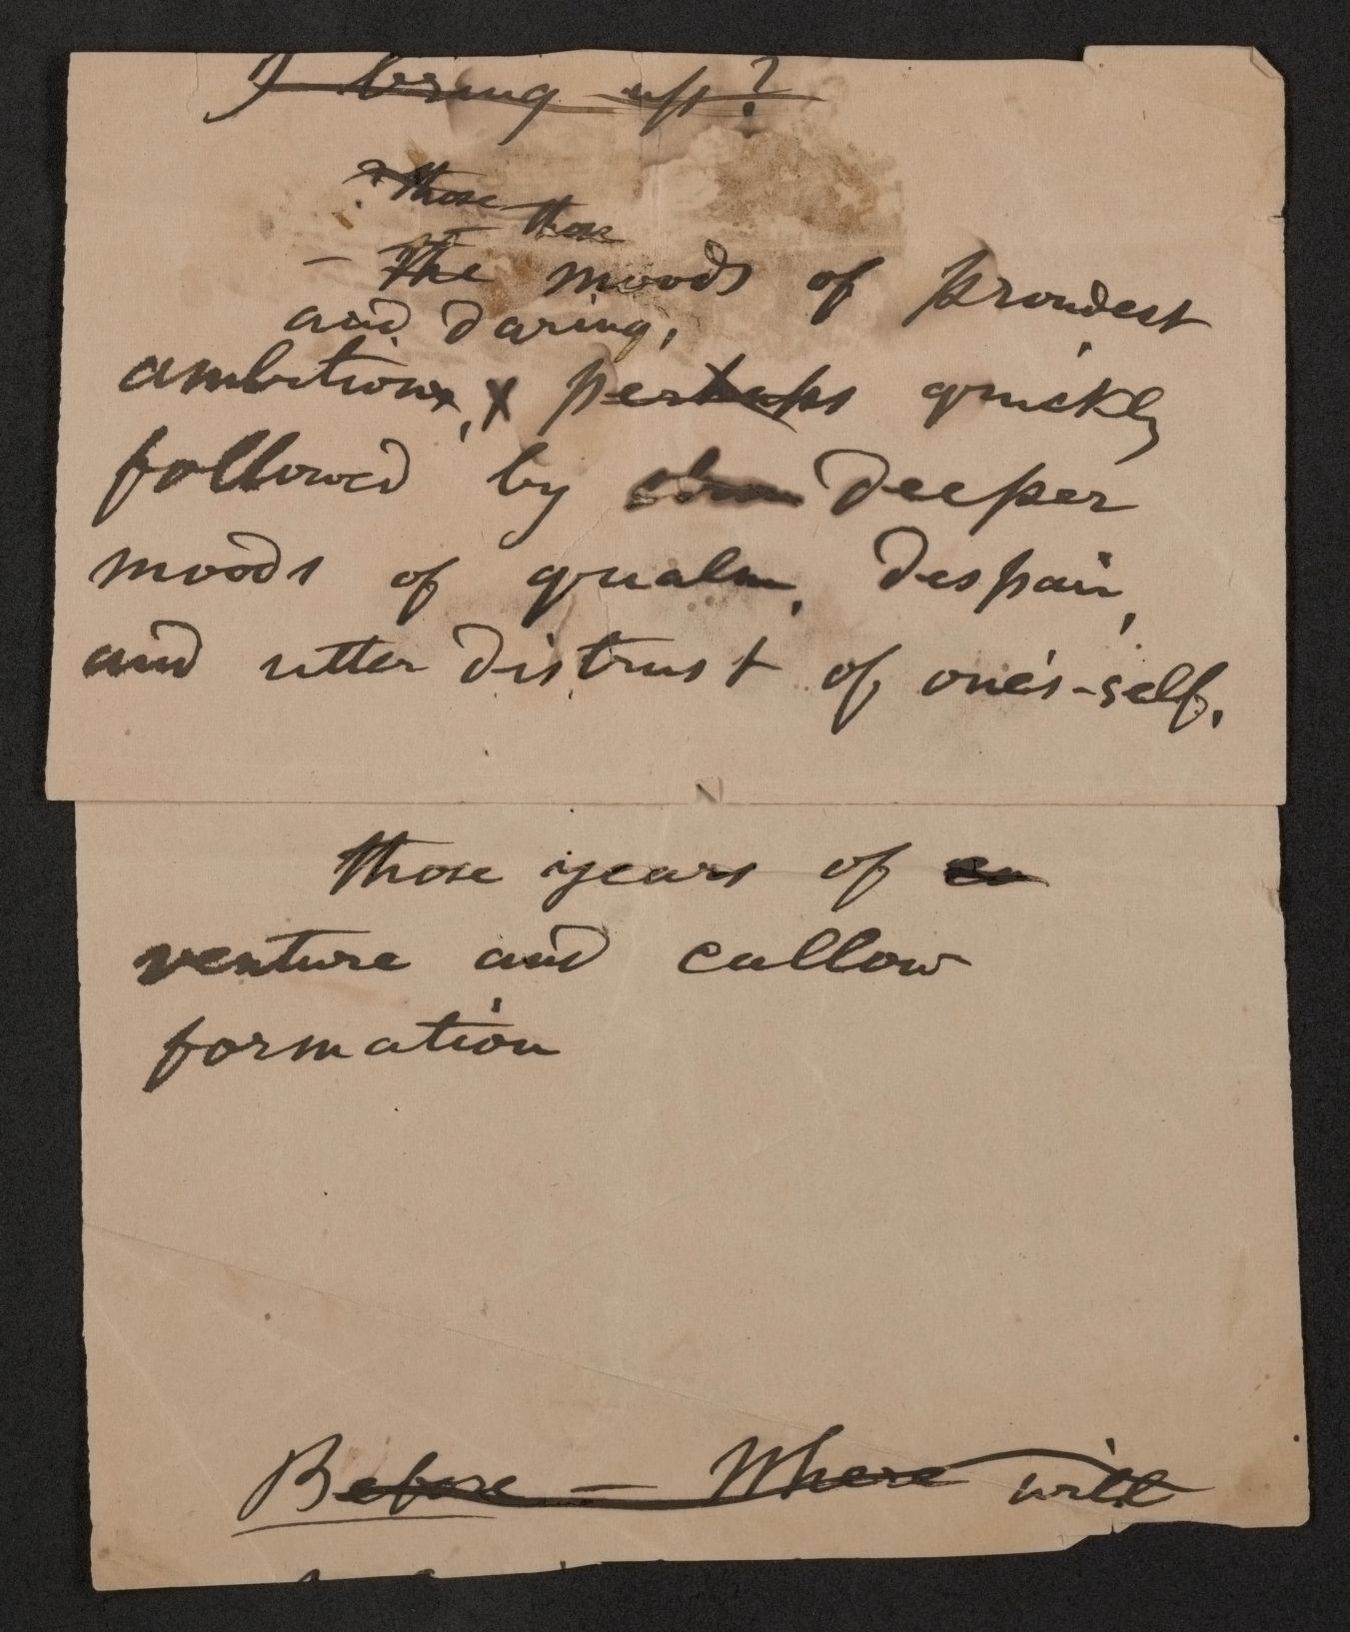 I bring up?
? those
those
— The moods of proudest
and daring,
ambitions, x perhaps quickly
followed by deeper
moods of qualm, despair,
and utter distrust of one's-self.
those years of
venture and callow
formation
Before — Where will